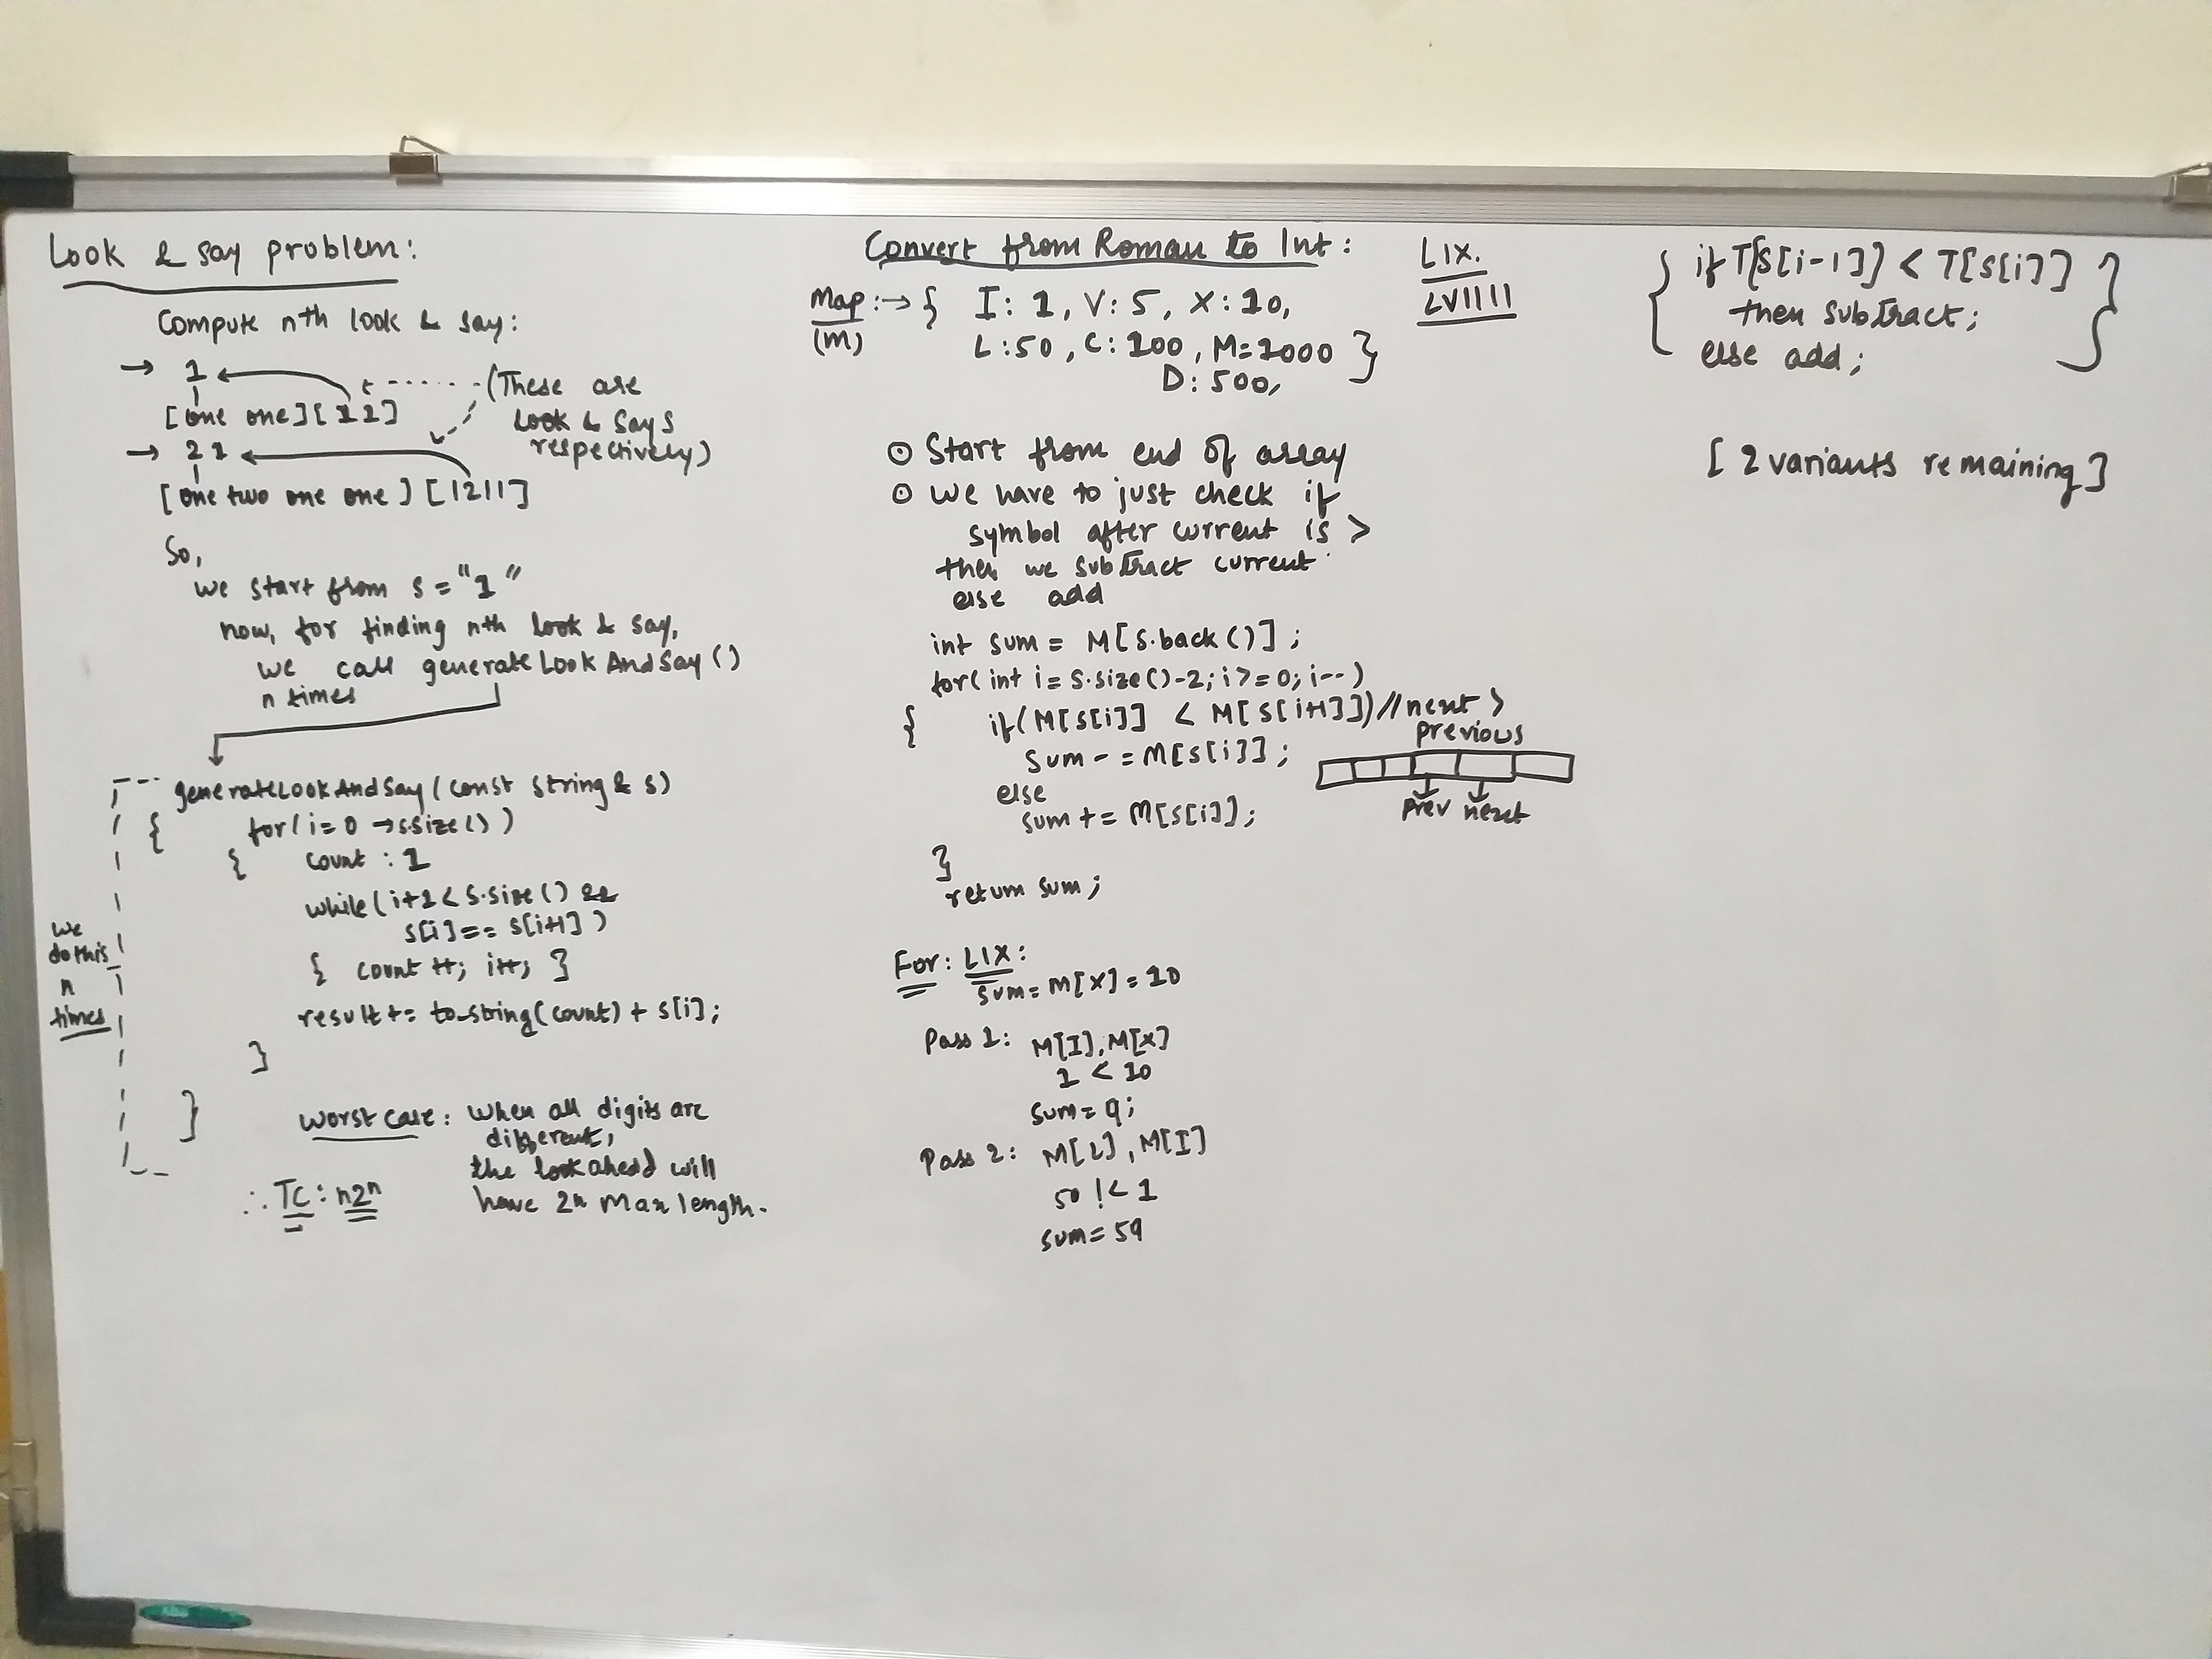 Look & say problem:
Compute nth look & say:
→ 1
[one one] [11]
(These are
look & says
respectively)
→ 21
[one two one one] [1211]
So,
we start from s = "1"
now, for finding nth look & say,
we call generateLookAndSay()
n times
generateLookAndSay(const string & s)
{ for(i=0 → s.size())
{ count : 1
while(i+1 < s.size() &&
s[i] == s[i+1])
{ count++; i++; }
result += to_string(count) + s[i];
}
}
we
do this
n
times
worst case: when all digits are
different,
the lookahead will
have 2n max length.
∴ TC: n2ⁿ
Convert from Roman to Int:
Map :→ { I: 1, V: 5, X: 10,
(M) L: 50, C: 100, M=1000 }
D: 500,
LIX.
LVIIII
⊙ Start from end of array
⊙ we have to just check if
symbol after current is >
then we subtract current
else add
int sum = M[s.back()];
for(int i = s.size()-2; i>=0; i--)
{ if(M[s[i]] < M[s[i+1]]) // next >
previous
sum -= M[s[i]];
else
sum += M[s[i]];
}
return sum;
prev next
For: LIX:
sum = M[X] = 10
Pass 1: M[I], M[X]
1 < 10
sum = 9;
Pass 2: M[L], M[I]
50 !< 1
sum = 59
{ if T[s[i-1]] < T[s[i]] }
then subtract;
else add;
[2 variants remaining]